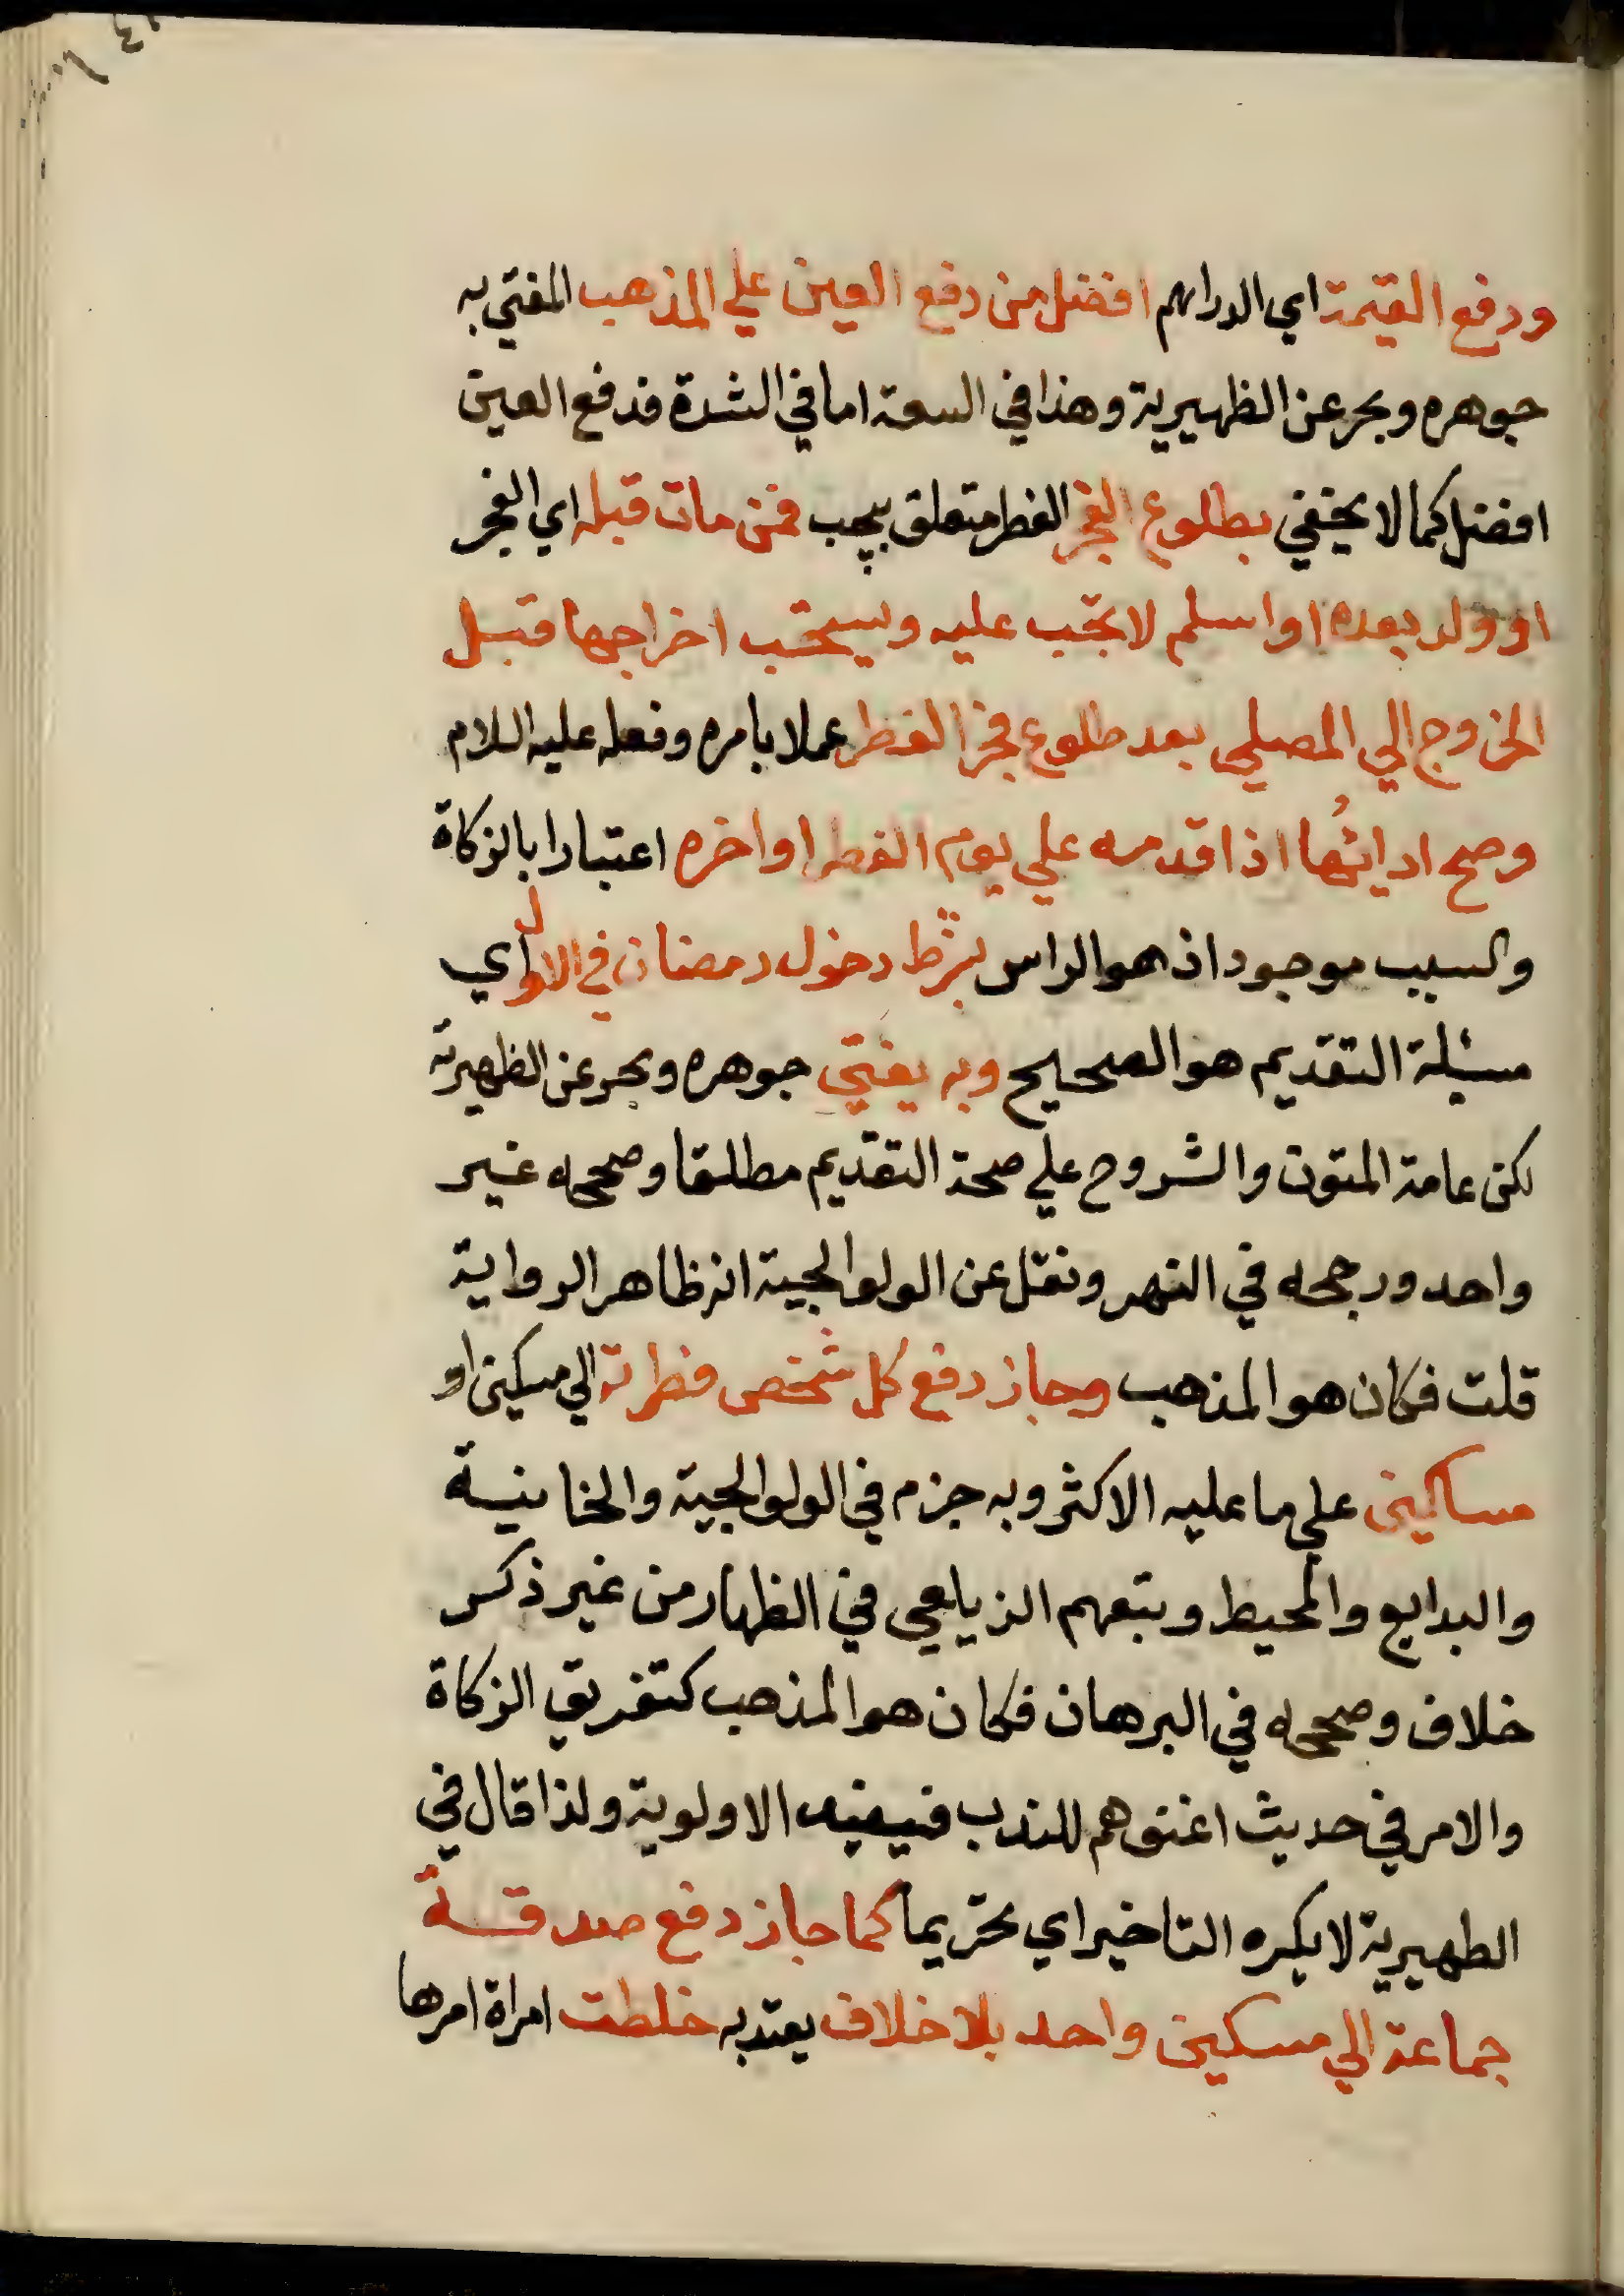 ودفع القيمة اي الدراهم افضل من دفع العين علي المذهب المفتي به
جوهره وبحر عن الظهيرية وهذا في السعة اما في الشدة فدفع العين
افضل كما لا يخفي بطلوع الفجر الفطر متعلق بيجب فمن مات قبله اي الفجر
او ولد بعده او اسلم لا تجب عليه ويستحب اخراجها قبل
الخروج الي المصلي بعد طلوع فجر الفطر عملا بامره وفعله عليه السلام
وصح ادائُها اذا قدمه علي يوم الفطر او اخره اعتبارا بالزكاة
والسبب موجود اذ هو الراس بشرط دخول رمضان في الاول اي
مسئلة التقديم هو الصحيح وبه يفتي جوهره وبحر عن الظهيرية
لكن عامة المتون والشروح علي صحة التقديم مطلقا وصححه غير
واحد ورجحه في النهر ونقل عن الولوالجية انه ظاهر الرواية
قلت فكان هو المذهب وجاز دفع كل شخص فطرته الي مسكين او
مساكين علي ما عليه الاكثر وبه جزم في الولوالجية والخانية
والبدايع والمحيط وتبعهم الزيلعي في الظهار من غير ذكر
خلاف وصححه في البرهان فكان هو المذهب كتفريق الزكاة
والامر في حديث اغنوهم للندب فيفيد الاولوية ولذا قال في
الطهيرية لا يكره التاخير اي تحريما كما جاز دفع صدقة
جماعة الي مسكين واحد بلا خلاف يعتد به خلطت امراة امرها